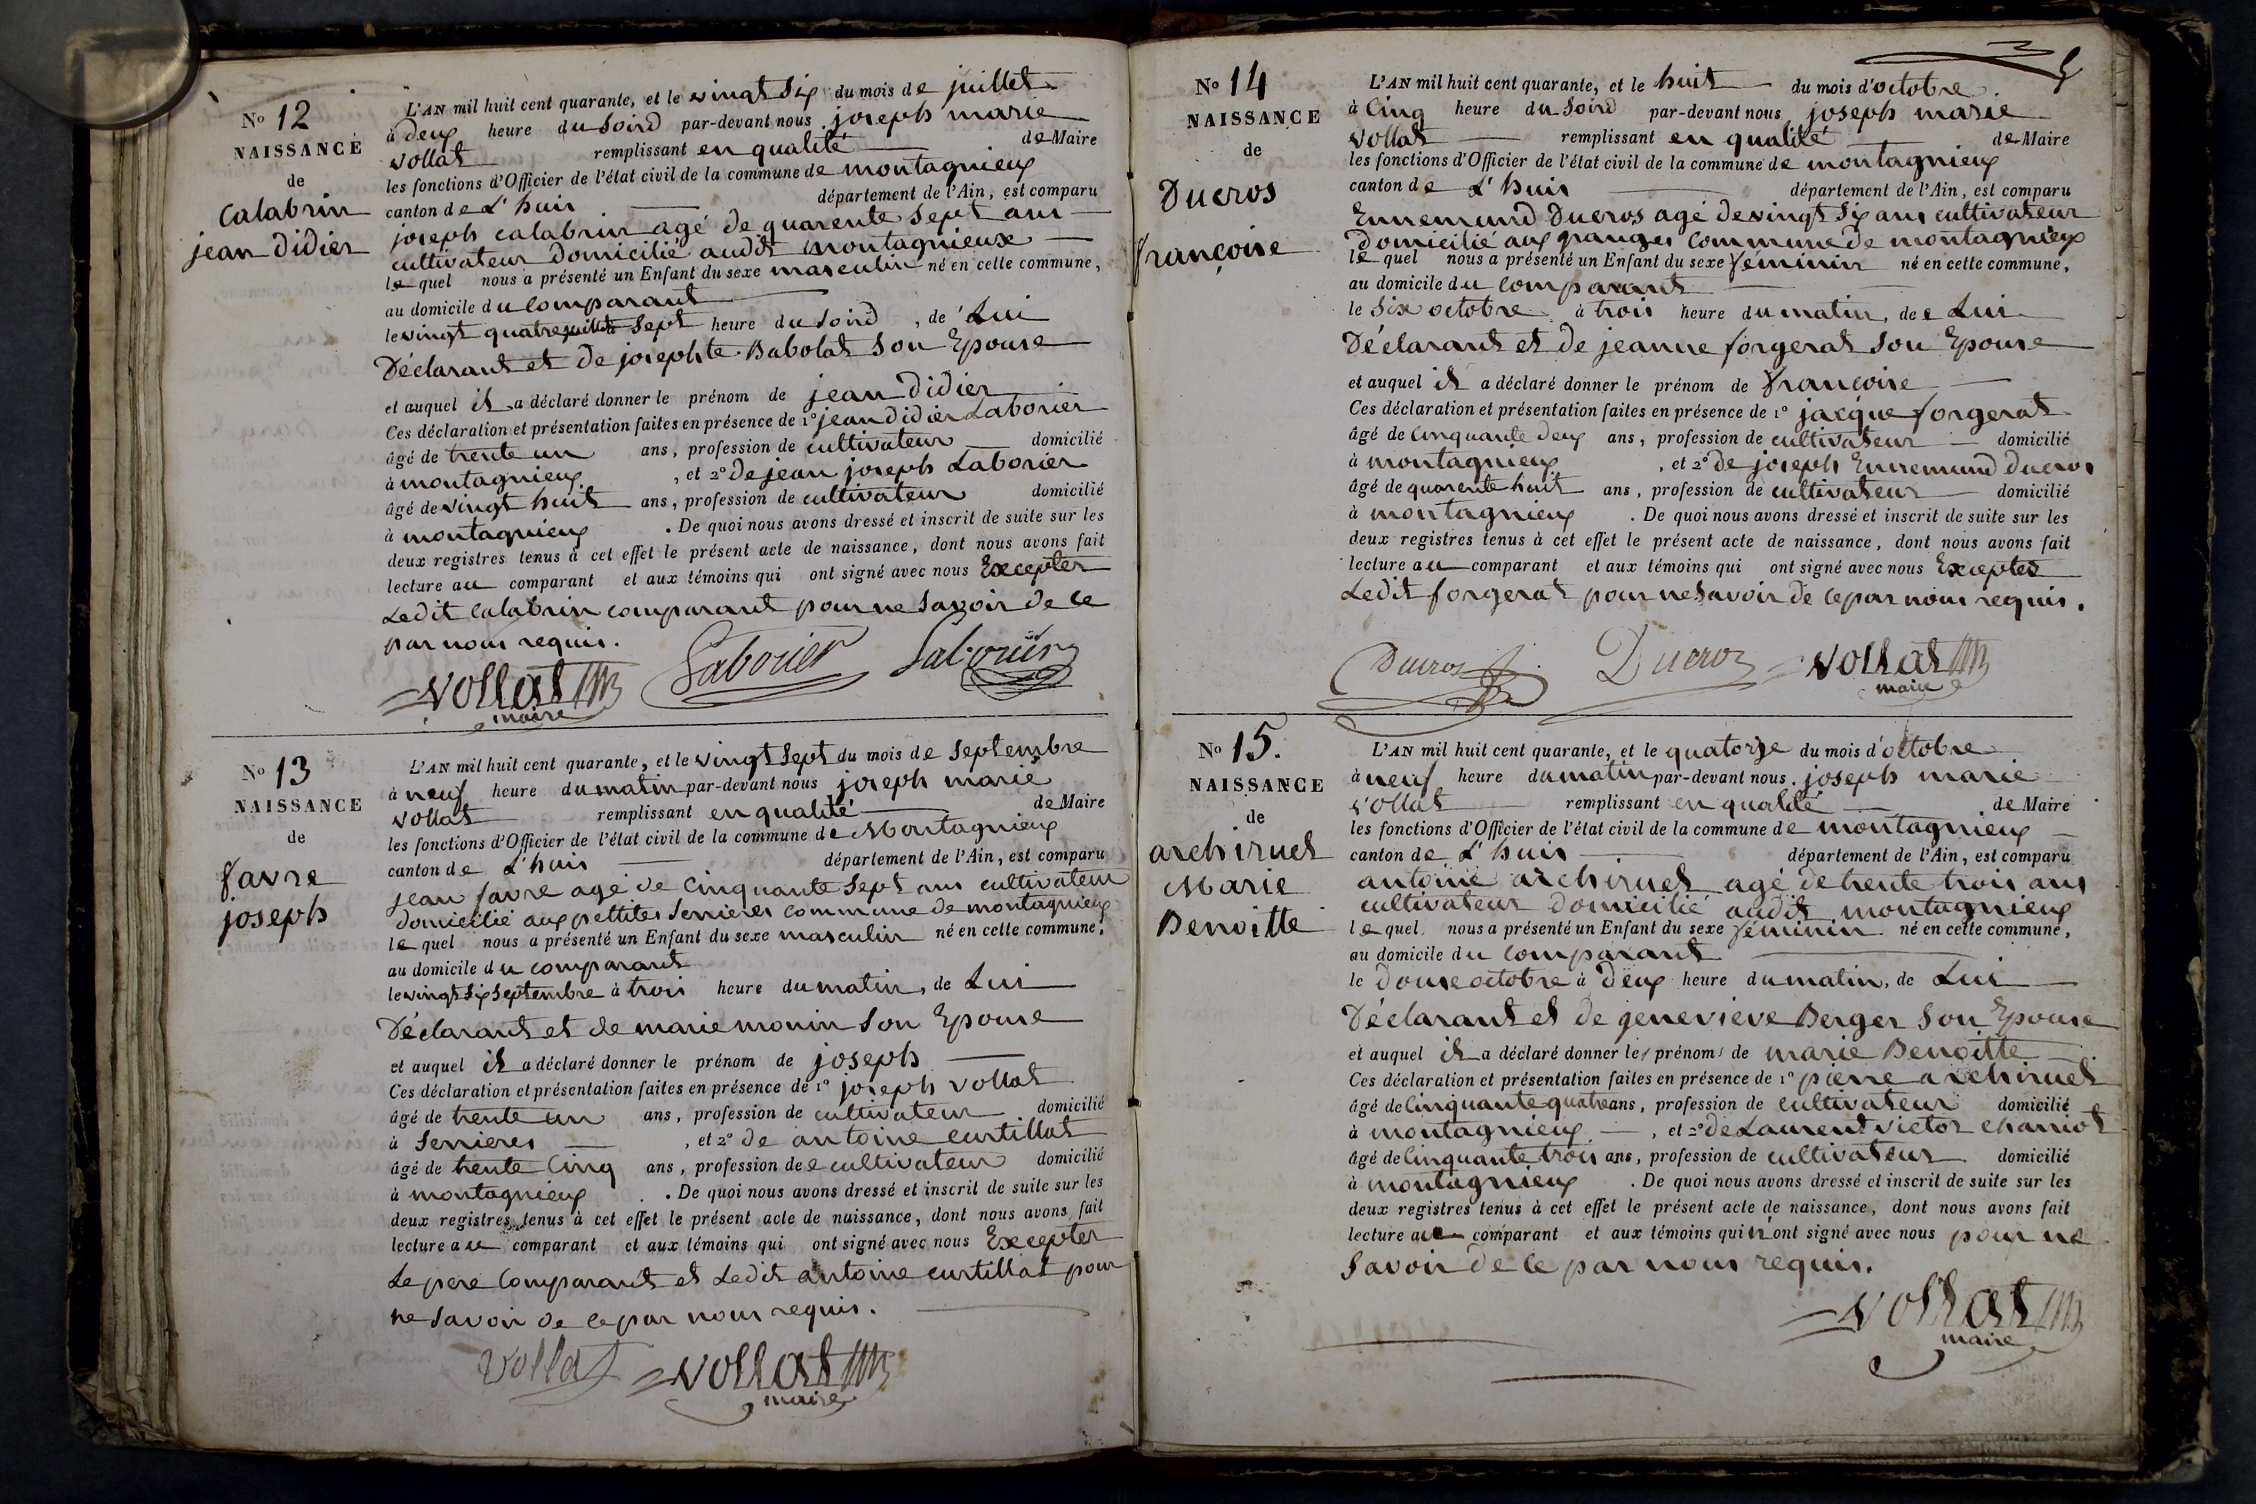 N° 12
NAISSANCE
de
Calabrin
jean Didier
L'AN mil huit cent quarante, et le vingt Six du mois de juillet
à deux heure du Soird par-devant nous joseph marie
Vollat remplissant en qualité de Maire
les fonctions d'Officier de l'état civil de la commune de montagnieux
canton de L'huis département de l'Ain, est comparu
joseph calabrin agé de quarente Sept ans
cultivateur Domicilié audit montagnieux
lequel nous a présenté un Enfant du sexe masculin né en cette commune,
au domicile du Comparant
le vingt quatre juillet à Sept heure du Soird, de Lui
Déclarant et de josephte Babolat Son Epouse
et auquel il a déclaré donner le prénom de jean Didier
Ces déclaration et présentation faites en présence de 1° jean Didier Laborier
âgé de trente un ans, profession de cultivateur domicilié
à montagnieux, et 2° de jean joseph Laborier
âgé de vingt huit ans, profession de cultivateur domicilié
à montagnieux. De quoi nous avons dressé et inscrit de suite sur les
deux registres tenus à cet effet le présent acte de naissance, dont nous avons fait
lecture au comparant et aux témoins qui ont signé avec nous Excepter
Ledit Calabrin comparant pour ne Savoir de ce
par nous requis.
Vollat Labouier Labouier
maire
N° 13
NAISSANCE
de
favre
joseph
L'AN mil huit cent quarante, et le vingt Sept du mois de Septembre
à neuf heure du matin par-devant nous joseph marie
Vollat remplissant en qualité de Maire
les fonctions d'Officier de l'état civil de la commune de Montagnieux
canton de L'huis département de l'Ain, est comparu
jean favre agé de Cinquante Sept ans cultivateur
domicilié aux pettites Serrieres commune de montagnieux
lequel nous a présenté un Enfant du sexe masculin né en cette commune,
au domicile du comparant
le vingt Six Septembre à trois heure du matin, de Lui
Déclarant et de marie monin Son Epouse
et auquel il a déclaré donner le prénom de joseph
Ces déclaration et présentation faites en présence de 1° joseph Vollat
âgé de trente un ans, profession de cultivateur domicilié
à Serrieres, et 2° de antoine curtillat
âgé de trente Cinq ans, profession de cultivateur domicilié
à montagnieux. De quoi nous avons dressé et inscrit de suite sur les
deux registres tenus à cet effet le présent acte de naissance, dont nous avons fait
lecture au comparant et aux témoins qui ont signé avec nous Excepter
Le pere Comparant et Ledit antoine curtillat pour
ne Savoir de ce par nous requis.
Vollat Vollat
maire
N° 14
NAISSANCE
de
Ducros
françoise
L'AN mil huit cent quarante, et le huit du mois d'octobre
à Cinq heure du Soird par-devant nous joseph marie
Vollat remplissant en qualité de Maire
les fonctions d'Officier de l'état civil de la commune de montagnieux
canton de L'huis département de l'Ain, est comparu
Ennemund Ducros agé de vingt Six ans cultivateur
Domicilié aux granges Commune de montagnieux
lequel nous a présenté un Enfant du sexe féminin né en cette commune,
au domicile du Comparant
le Six octobre à trois heure du matin, de Lui
Déclarant et de jeanne forgerat Son Epouse
et auquel il a déclaré donner le prénom de françoise
Ces déclaration et présentation faites en présence de 1° jacque forgerat
âgé de Cinquante deux ans, profession de cultivateur domicilié
à montagnieux, et 2° de joseph Ennemund Ducros
âgé de quarente huit ans, profession de cultivateur domicilié
à montagnieux. De quoi nous avons dressé et inscrit de suite sur les
deux registres tenus à cet effet le présent acte de naissance, dont nous avons fait
lecture au comparant et aux témoins qui ont signé avec nous Exceptez
Ledit forgerat pour ne Savoir de ce par nous requis.
Ducros Ducroz Vollat
maire
N° 15.
NAISSANCE
de
archiruel
Marie
Benoitte
L'AN mil huit cent quarante, et le quatorze du mois d'octobre
à neuf heure du matin par-devant nous joseph marie
Vollat remplissant en qualité de Maire
les fonctions d'Officier de l'état civil de la commune de montagnieux
canton de L'huis département de l'Ain, est comparu
antoine archiruel agé de trente trois ans
cultivateur domicilié audit montagnieux
lequel nous a présenté un Enfant du sexe féminin né en cette commune,
au domicile du Comparant
le douse octobre à deux heure du matin, de Lui
Déclarant et de genevieve Berger Son Epouse
et auquel il a déclaré donner les prénoms de marie Benoitte
Ces déclaration et présentation faites en présence de 1° pierre archiruel
âgé de Cinquante quatre ans, profession de cultivateur domicilié
à montagnieux, et 2° de Laurent victor chaniot
âgé de Cinquante trois ans, profession de cultivateur domicilié
à montagnieux. De quoi nous avons dressé et inscrit de suite sur les
deux registres tenus à cet effet le présent acte de naissance, dont nous avons fait
lecture au comparant et aux témoins qui n'ont signé avec nous pour ne
Savoir de ce par nous requis.
Vollat
maire